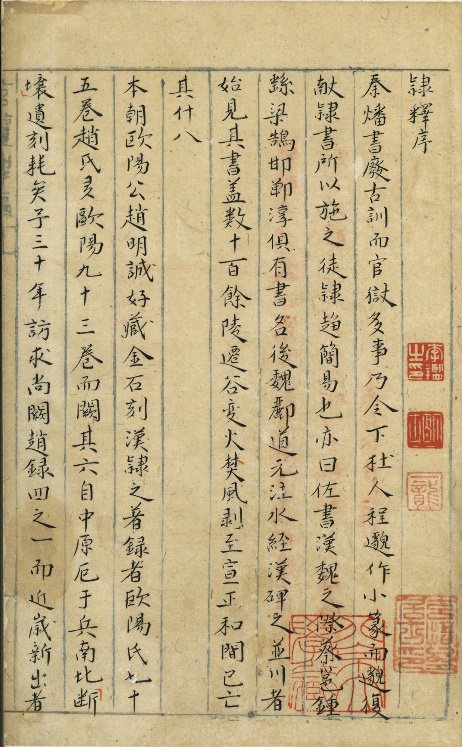 隸釋序
秦燔書廢古訓而官獄多事乃令下杜人程邈作小篆而邈復
献隸書所以施之徒隸趨簡易也亦曰佐書漢魏之際蔡邕鍾
繇梁鵠邯鄲淳俱有書名後魏酈道元注水經漢碑之並川者
始見其書盖数十百餘陵遷谷变火焚風剥至宣正和間已亡
其什八
本朝歐陽公趙明誠好藏金石刻漢隸之著録者歐陽氏七十
五卷趙氏多歐陽九十三卷而闕其六自中原厄于兵南北断
壊遺刻耗矣予三十年訪求尚闕趙録四之一而近歲新出者